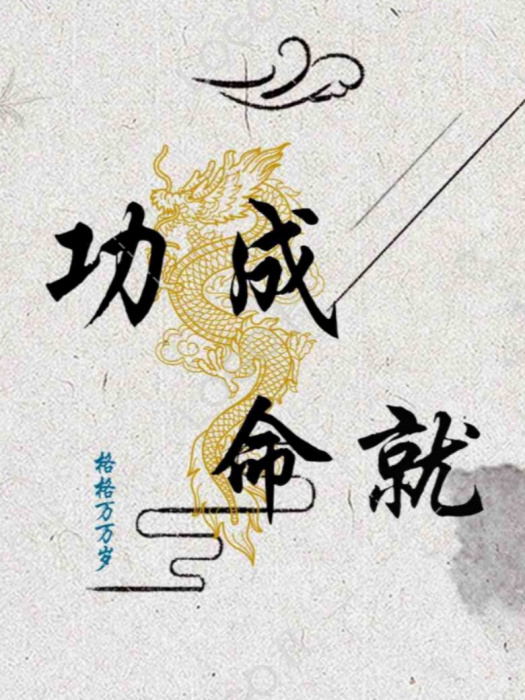 功成
命就
格格万万岁